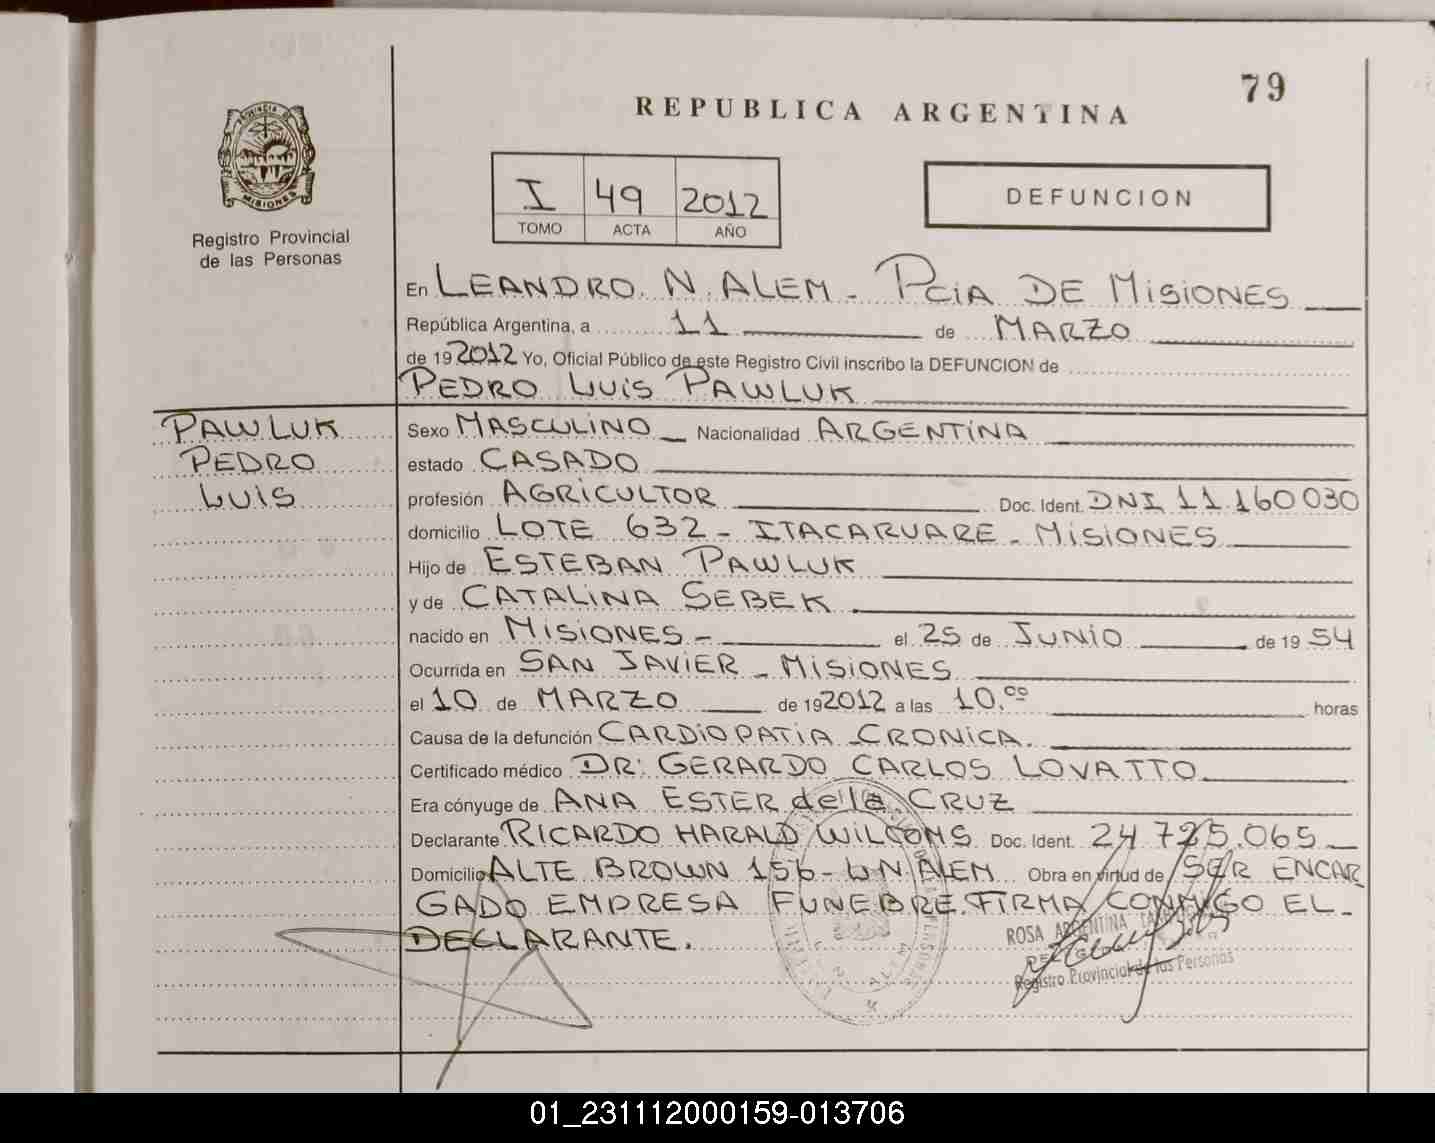 79
REPUBLICA ARGENTINA
PROVINCIA DE
MISIONES
Registro Provincial
de las Personas
I 49 2012
TOMO ACTA AÑO
DEFUNCION
En LEANDRO. N. ALEM - Pcia DE MISIONES
República Argentina, a 11 de MARZO
de 19 2012 Yo, Oficial Público de este Registro Civil inscribo la DEFUNCION de
PEDRO LUIS PAWLUK
PAWLUK
PEDRO
LUIS
Sexo MASCULINO Nacionalidad ARGENTINA
estado CASADO
profesión AGRICULTOR Doc. Ident. DNI 11.160030
domicilio LOTE 632 - ITACARUARE - MISIONES
Hijo de ESTEBAN PAWLUK
y de CATALINA SEBEK
nacido en MISIONES - el 25 de JUNIO de 19 54
Ocurrida en SAN JAVIER - MISIONES
el 10 de MARZO de 19 2012 a las 10.°° horas
Causa de la defunción CARDIOPATIA CRONICA.
Certificado médico DR: GERARDO CARLOS LOVATTO
Era cónyuge de ANA ESTER della CRUZ
Declarante RICARDO HARALD WILCOMS Doc. Ident. 24.725.065
Domicilio ALTE BROWN 156 - L N ALEM Obra en virtud de SER ENCAR
GADO EMPRESA FUNEBRE. FIRMA CONMIGO EL
DECLARANTE.
ROSA ARGENTINA
Registro Provincial de las Personas
01_231112000159-013706